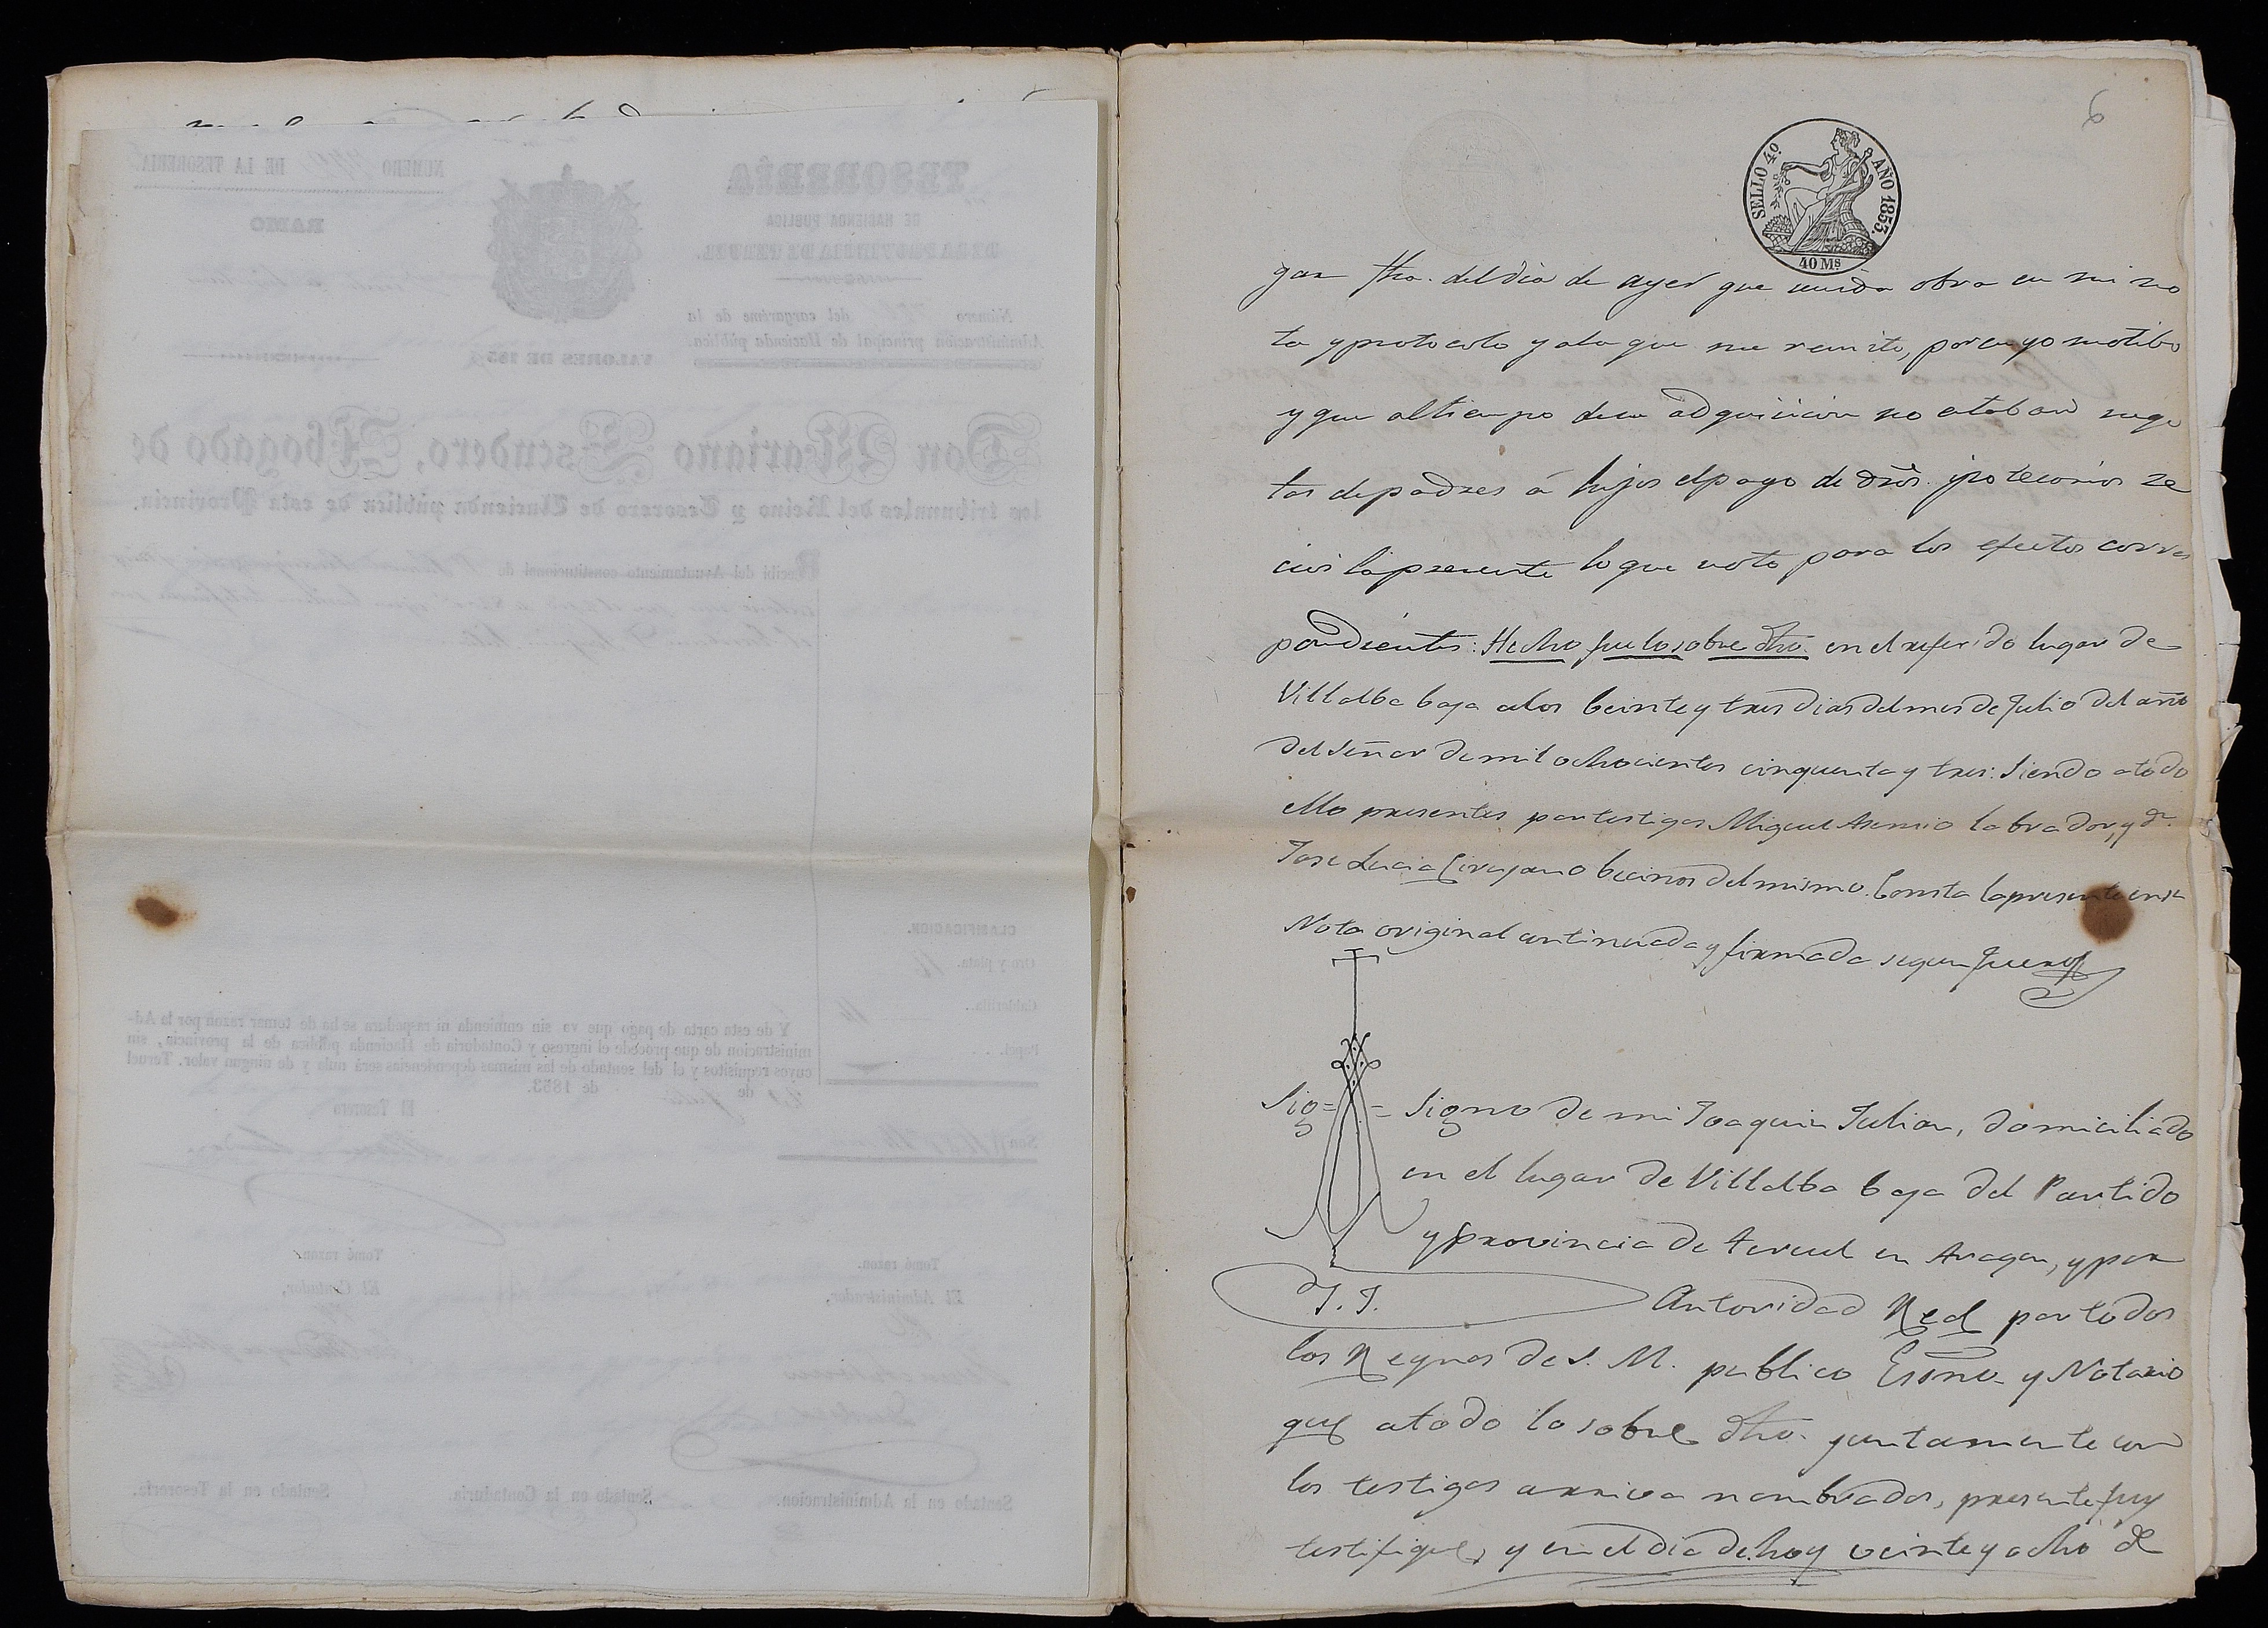 6
SELLO 4º AÑO 1853.
40 Ms
gar fha. del dia de ayer que unida obra en mi no
ta y protocolo y ala que me remito, por cuyo motibo
y que al tiempo de su adquisicion no estaban suge
tas de padres á hijos el pago de dros. ipotecarios re
civi la presente lo que noto para los efectos corres
pondientes: Hecho fue lo sobre dho. en el referido lugar de
Villalba baja alos beinte y tres dias del mes de Julio del año
del Señor de mil ochocientos cinquenta y tres: Siendo atodo
ello presentes por testigos Miguel Asensio labrador, y dn.
Jose Lucia Cirujano becinos del mismo. Consta la presente en su
Nota original continuada y firmada segun fuero
Sig= = Signo de mi Joaquin Julian, domiciliado
en el lugar de Villalba baja del Partido
y provincia de teruel en Aragon, y por
J. J. Autoridad Real por todos
los Reynos de S. M. publico Essno. y Notario
que atodo lo sobre dho. juntamente con
los testigos arriva nombrados, presente fuy
testifique, y en el dia de hoy veinte y ocho de
TESORERÍA
DE HACIENDA PUBLICA
DE LA PROVINCIA DE TERUEL.
NUMERO DE LA TESORERIA.
RAMO
Número del cargarême de la
Administracion principal de Hacienda pública.
VALORES DE 185
Don Mariano Escudero, Abogado de
los tribunales del Reino y Tesorero de Hacienda pública de esta Provincia.
Recibí del Ayuntamiento constitucional de
CLASIFICACION.
Oro y plata.
Calderilla.
Papel.
Y de esta carta de pago que va sin enmienda ni raspadura se ha de tomar razon por la Ad-
ministracion de que procede el ingreso y Contaduria de Hacienda pública de la provincia, sin
cuyos requisitos y el del sentado de las mismas dependencias será nula y de ningun valor. Teruel
de de 1853.
El Tesorero
Son
Tomé razon.
El Administrador,
Tomé razon.
El Contador,
Sentado en la Administracion.
Sentado en la Contaduria.
Sentado en la Tesorería.